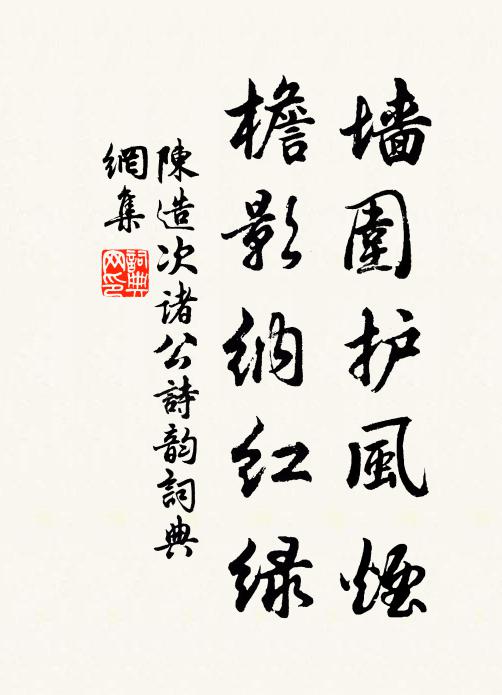 墙圍护風煙
檐影纳红绿
陳造次诸公詩韵詞典
網集
詞典网印